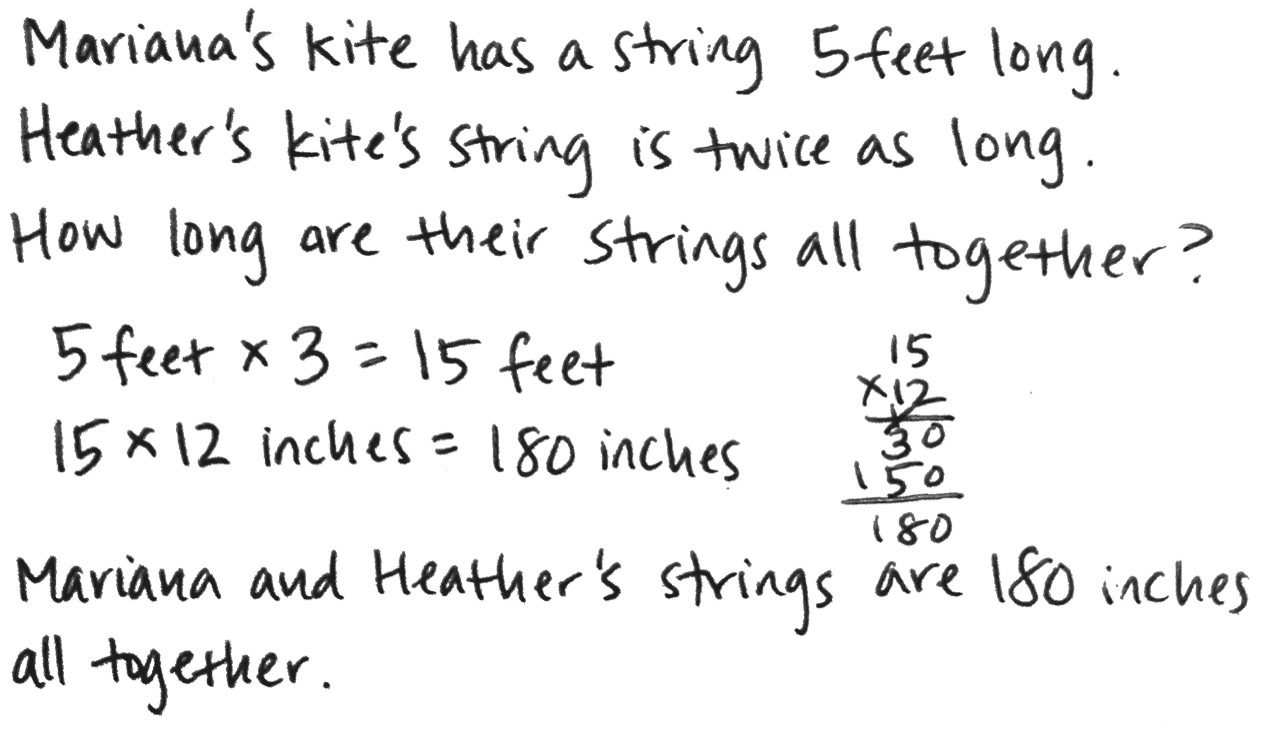 Mariana's kite has a string 5 feet long.
Heather's kite's string is twice as long.
How long are their strings all together?
5 feet × 3 = 15 feet
15 × 12 inches = 180 inches
15
×12
1
30
150
180
Mariana and Heather's strings are 180 inches
all together.